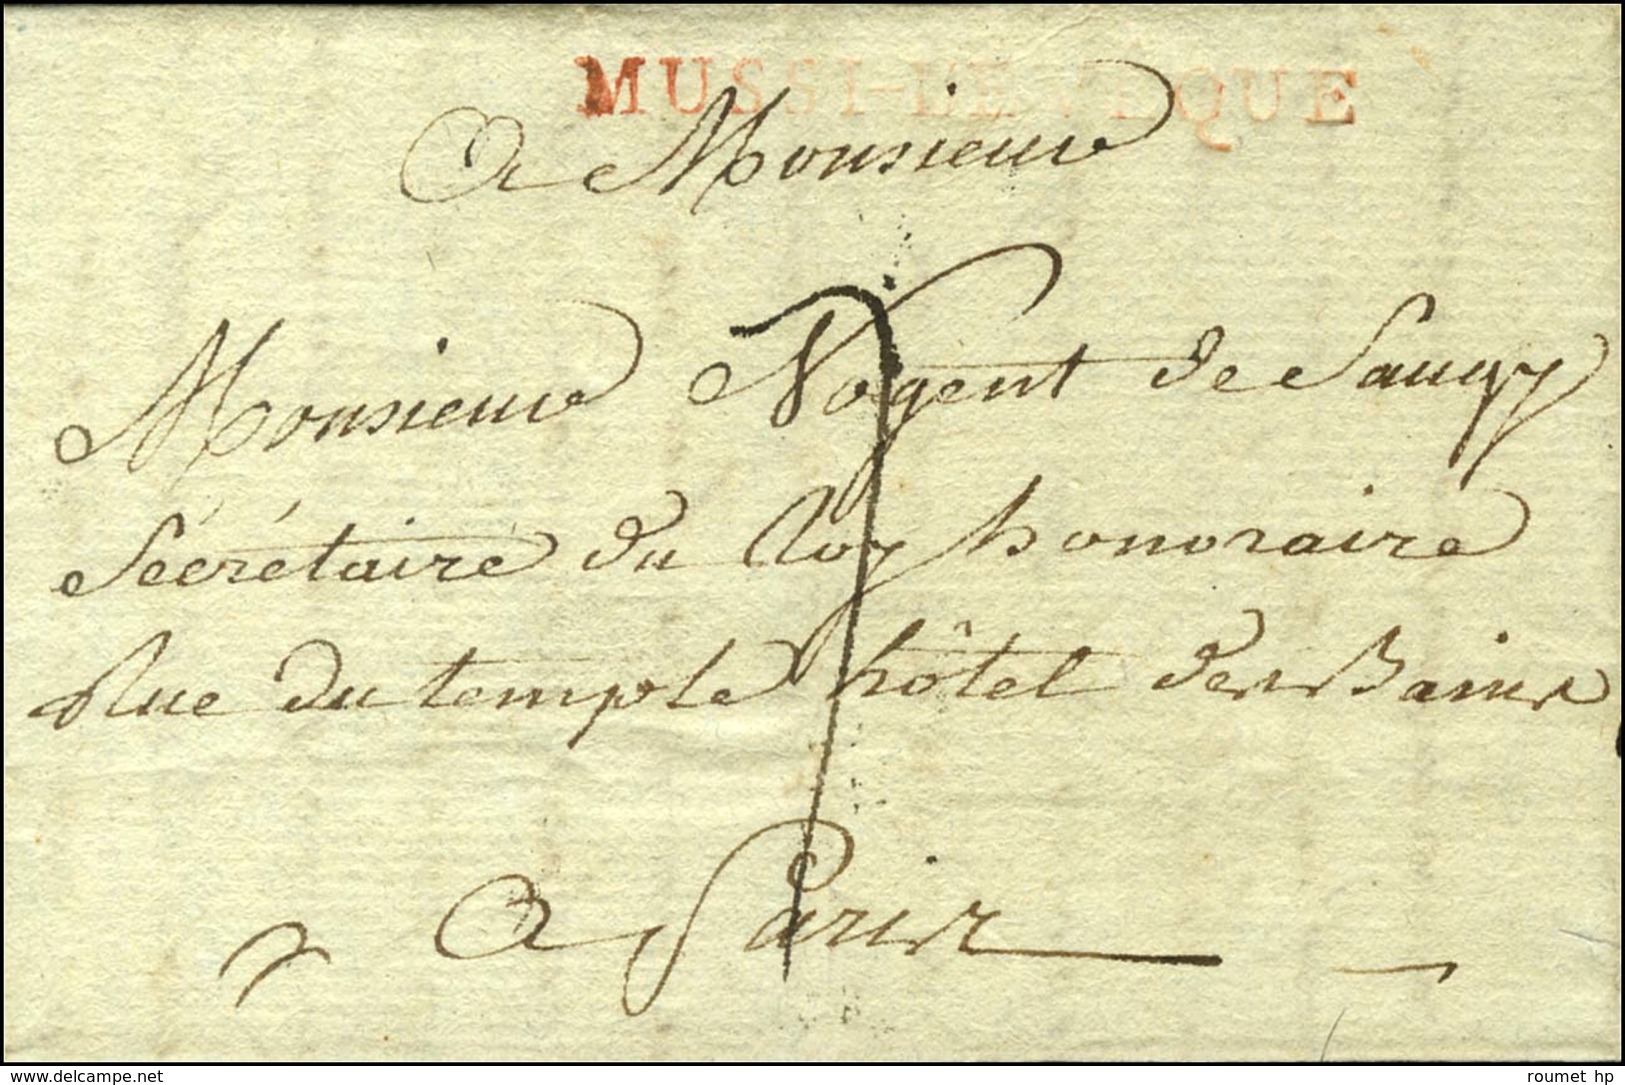 MUSSI-L'EVEQUE
A Monsieur
Monsieur Nogent de Saucy
Sécrétaire du Roy honoraire
Rue du temple hôtel des Bains
A Paris
7
www.delcampe.net
roumet hp